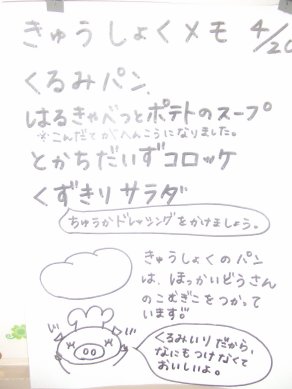 きゅうしょくメモ 4/20
くるみパン
はるきゃべっとポテトのスープ
※こんだてがへんこうになりました。
とかちだいずコロッケ
くずきりサラダ
ちゅうかドレッシングをかけましょう。
きゅうしょくのパン
は、ほっかいどうさん
のこむぎこをつかって
います!!
くるみいりだから、
なにもつけなくて
おいしいよ。